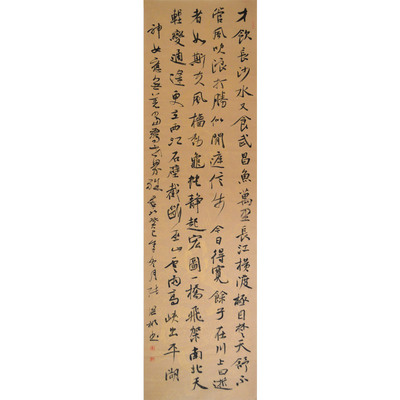 才飲長沙水又食武昌魚萬里長江橫渡極目楚天舒不
管風吹浪打勝似閒庭信步今日得寬餘子在川上曰逝
者如斯夫風檣動龜蛇靜起宏圖一橋飛架南北天
塹變通途更立西江石壁截斷巫山雲雨高峽出平湖
神女應無恙當驚世界殊 癸巳年 月